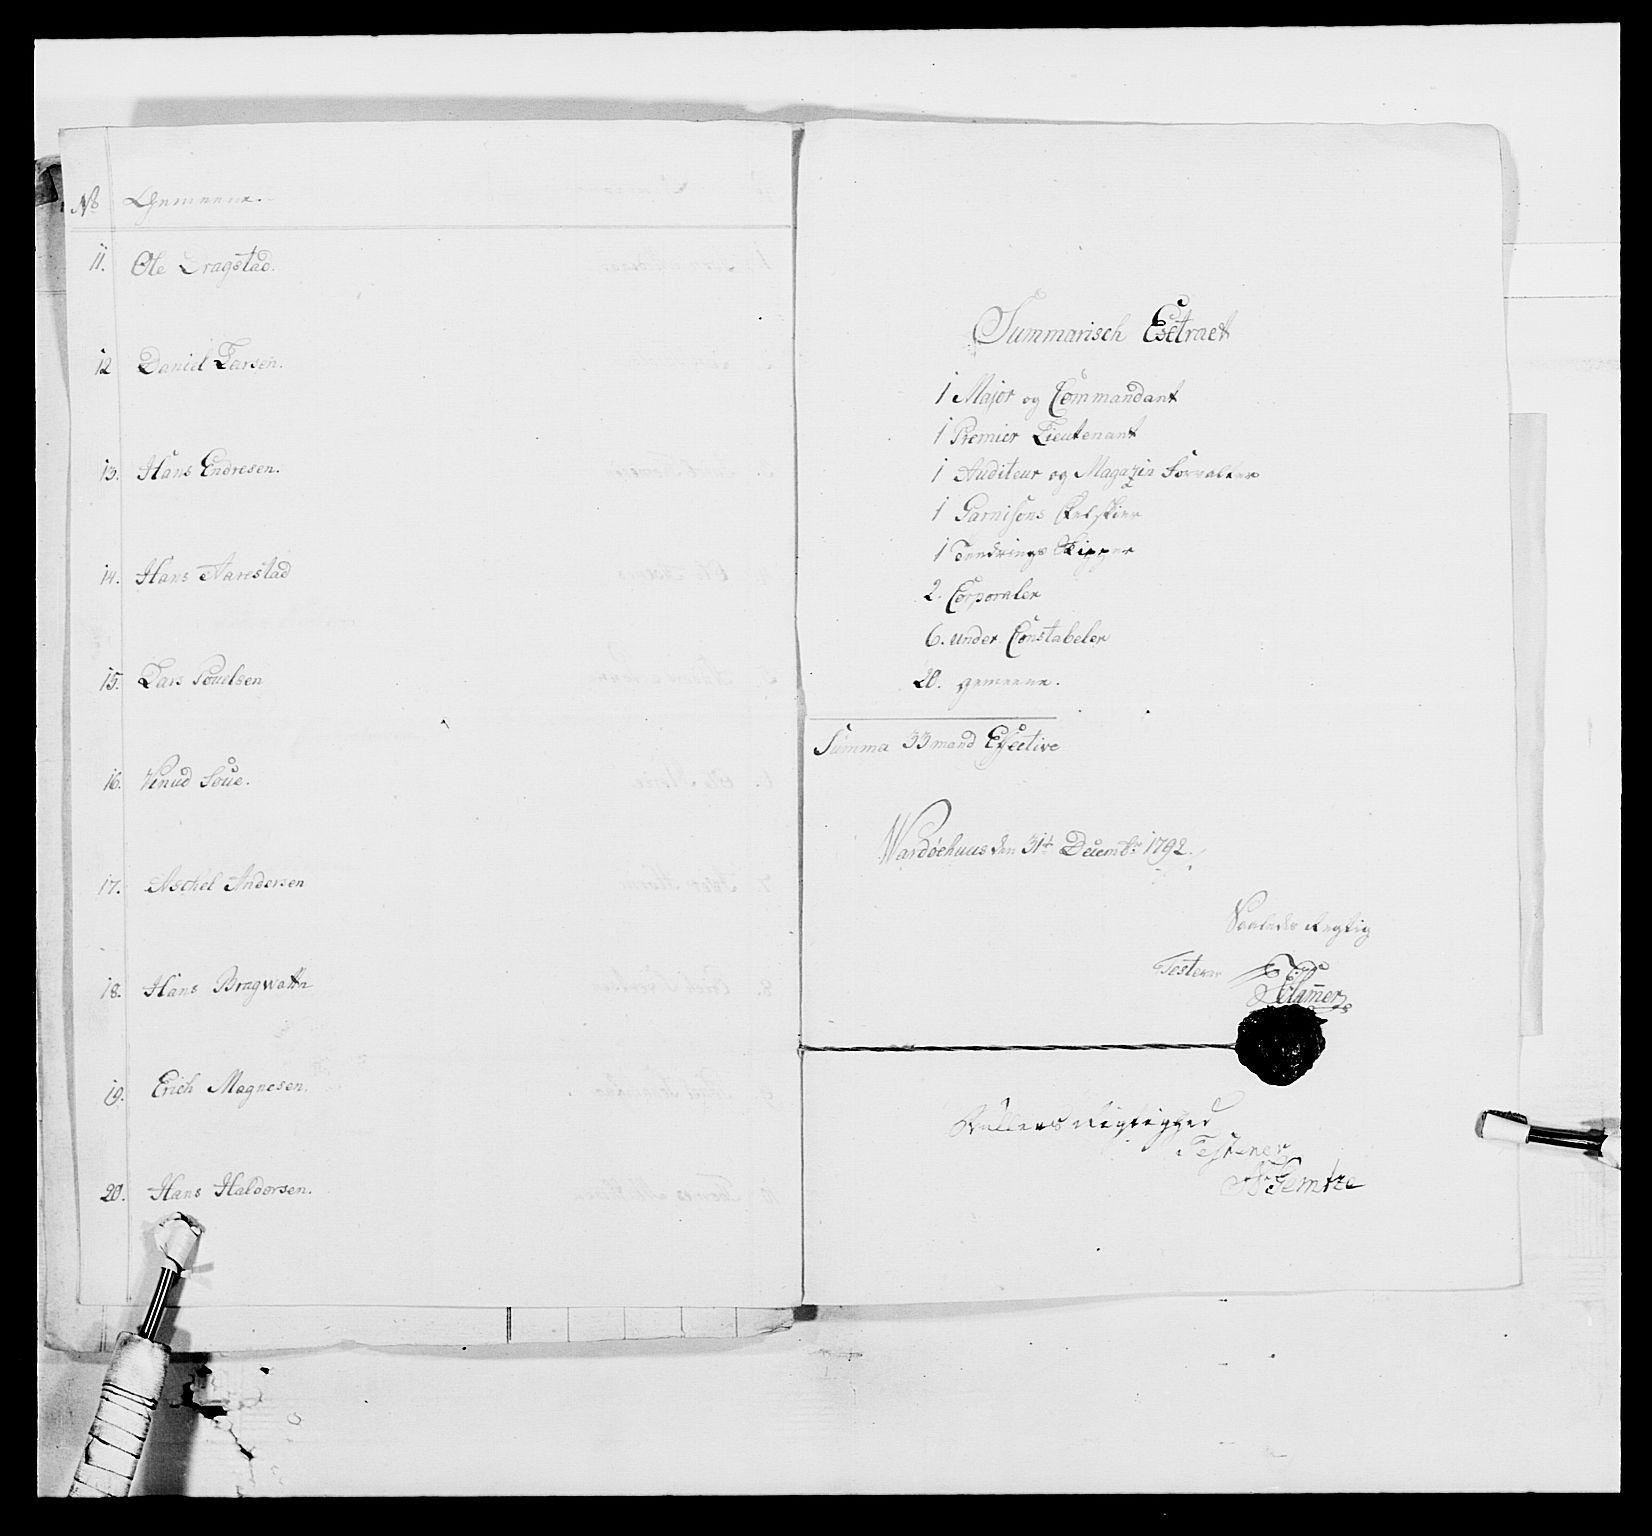 No Gemeene.
11. Ole Dragstad.
12 Daniel Larsen.
13. Hans Endresen.
14. Hans Aarestad
15. Lars Pouelsen
16. Knud Soue.
17. Aschel Andersen
18. Hans Bragwattn
19. Erich Magnesen.
20. Hans Haldorsen.
Summarisch Extract
1 Major og Commandant
1 Premier Lieutenant
1 Auditeur og Magazin Forvalter
1 Garnisons Feldskier
1 Tendrings Skipper
2. Corporaler
6. under Constabeler
20. gemeene.
Summa 33 mand Effective
Wardøehuus den 31te Decembr 1792.
Saaledes Rigtig
Testerer
Hammer
Rullens Rigtighed
Testerer